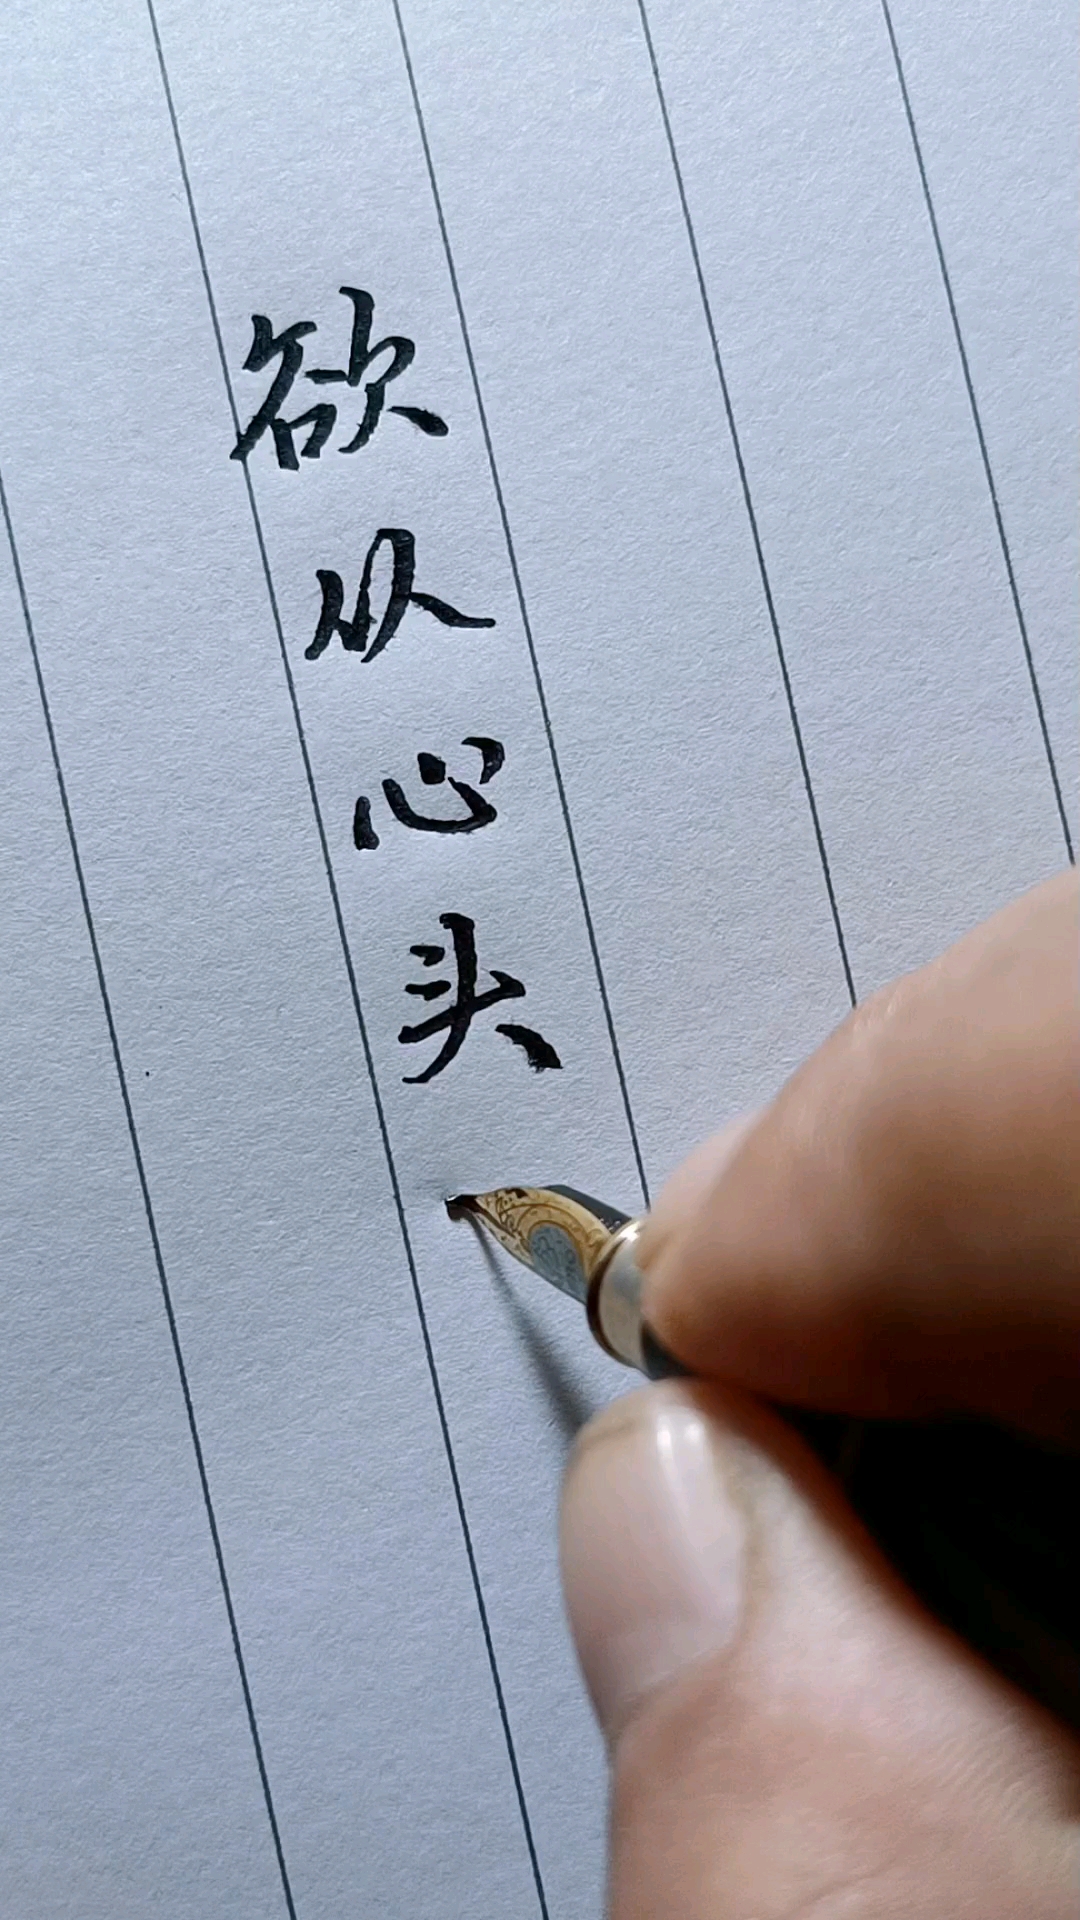 欲从心头